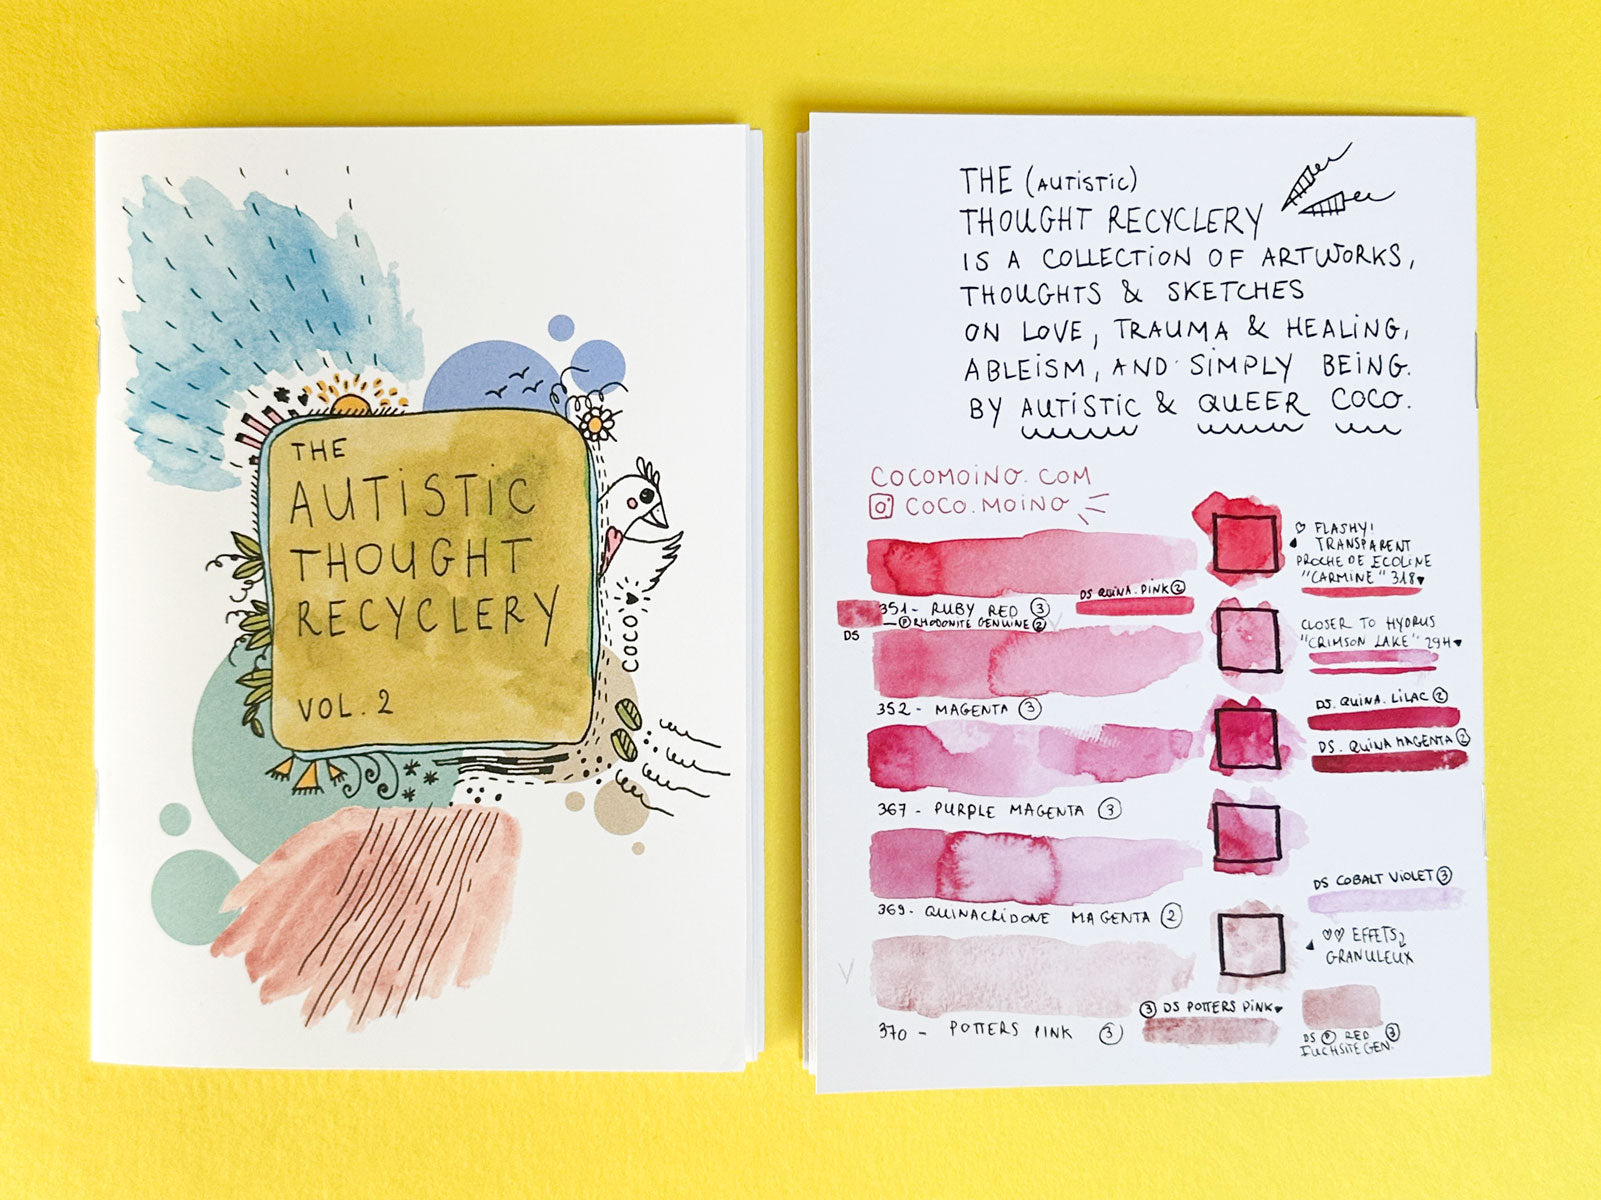 THE
AUTISTIC
THOUGHT
RECYCLERY
VOL. 2
COCO
THE (AUTISTIC)
THOUGHT RECYCLERY
IS A COLLECTION OF ARTWORKS,
THOUGHTS & SKETCHES
ON LOVE, TRAUMA & HEALING,
ABLEISM, AND SIMPLY BEING.
BY AUTISTIC & QUEER COCO.
COCOMOINO.COM
COCO.MOINO
♡ FLASHY!
TRANSPARENT
PROCHE DE ECOLINE
"CARMINE" 318♥
DS QUINA. PINK ②
351 - RUBY RED ③
DS
Ⓟ RHODONITE GENUINE ②
CLOSER TO HYDRUS
"CRIMSON LAKE" 29H♥
352 - MAGENTA ③
DS. QUINA. LILAC ②
DS. QUINA MAGENTA ②
367 - PURPLE MAGENTA ③
369 - QUINACRIDONE MAGENTA ②
DS COBALT VIOLET ③
♡♡ EFFETS
GRANULEUX
370 - POTTERS PINK ③
③ DS POTTERS PINK♥
DS Ⓟ RED ③
FUCHSITE GEN.